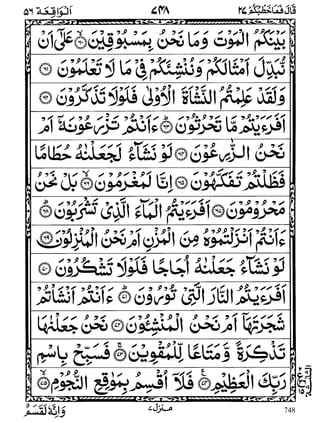 قَالَ فَمَا خَطْبُكُمْ ٢٧ ٧٤٨ اَلْوَاقِعَة ٥٦
بَيْنَكُمُ الْمَوْتَ وَمَا نَحْنُ بِمَسْبُوْقِيْنَ ﴿٦٠﴾ عَلٰٓى اَنْ
نُّبَدِّلَ اَمْثَالَكُمْ وَنُنْشِئَكُمْ فِيْ مَا لَا تَعْلَمُوْنَ ﴿٦١﴾
وَلَقَدْ عَلِمْتُمُ النَّشْاَةَ الْاُوْلٰى فَلَوْلَا تَذَكَّرُوْنَ ﴿٦٢﴾
اَفَرَءَيْتُمْ مَّا تَحْرُثُوْنَ ﴿٦٣﴾ ءَاَنْتُمْ تَزْرَعُوْنَهٗٓ اَمْ
نَحْنُ الزّٰرِعُوْنَ ﴿٦٤﴾ لَوْ نَشَآءُ لَجَعَلْنٰهُ حُطَامًا
فَظَلْتُمْ تَفَكَّهُوْنَ ﴿٦٥﴾ اِنَّا لَمُغْرَمُوْنَ ﴿٦٦﴾ بَلْ نَحْنُ
مَحْرُوْمُوْنَ ﴿٦٧﴾ اَفَرَءَيْتُمُ الْمَآءَ الَّذِيْ تَشْرَبُوْنَ ﴿٦٨﴾
ءَاَنْتُمْ اَنْزَلْتُمُوْهُ مِنَ الْمُزْنِ اَمْ نَحْنُ الْمُنْزِلُوْنَ ﴿٦٩﴾
لَوْ نَشَآءُ جَعَلْنٰهُ اُجَاجًا فَلَوْلَا تَشْكُرُوْنَ ﴿٧٠﴾
اَفَرَءَيْتُمُ النَّارَ الَّتِيْ تُوْرُوْنَ ﴿٧١﴾ ءَاَنْتُمْ اَنْشَاْتُمْ
شَجَرَتَهَآ اَمْ نَحْنُ الْمُنْشِئُوْنَ ﴿٧٢﴾ نَحْنُ جَعَلْنٰهَا
تَذْكِرَةً وَّمَتَاعًا لِّلْمُقْوِيْنَ ﴿٧٣﴾ فَسَبِّحْ بِاسْمِ
رَبِّكَ الْعَظِيْمِ ﴿٧٤﴾ فَلَآ اُقْسِمُ بِمَوٰقِعِ النُّجُوْمِ ﴿٧٥﴾
وَاِنَّهٗ لَقَسَمٌ
منزل ٧
748